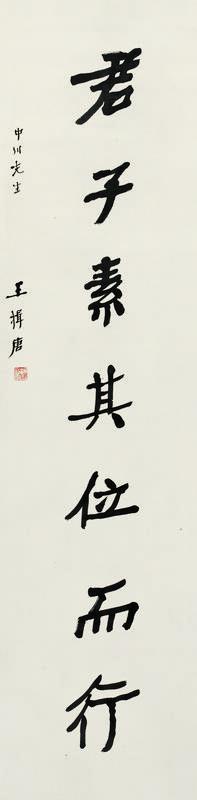 君子素其位而行
中川先生
王揖唐